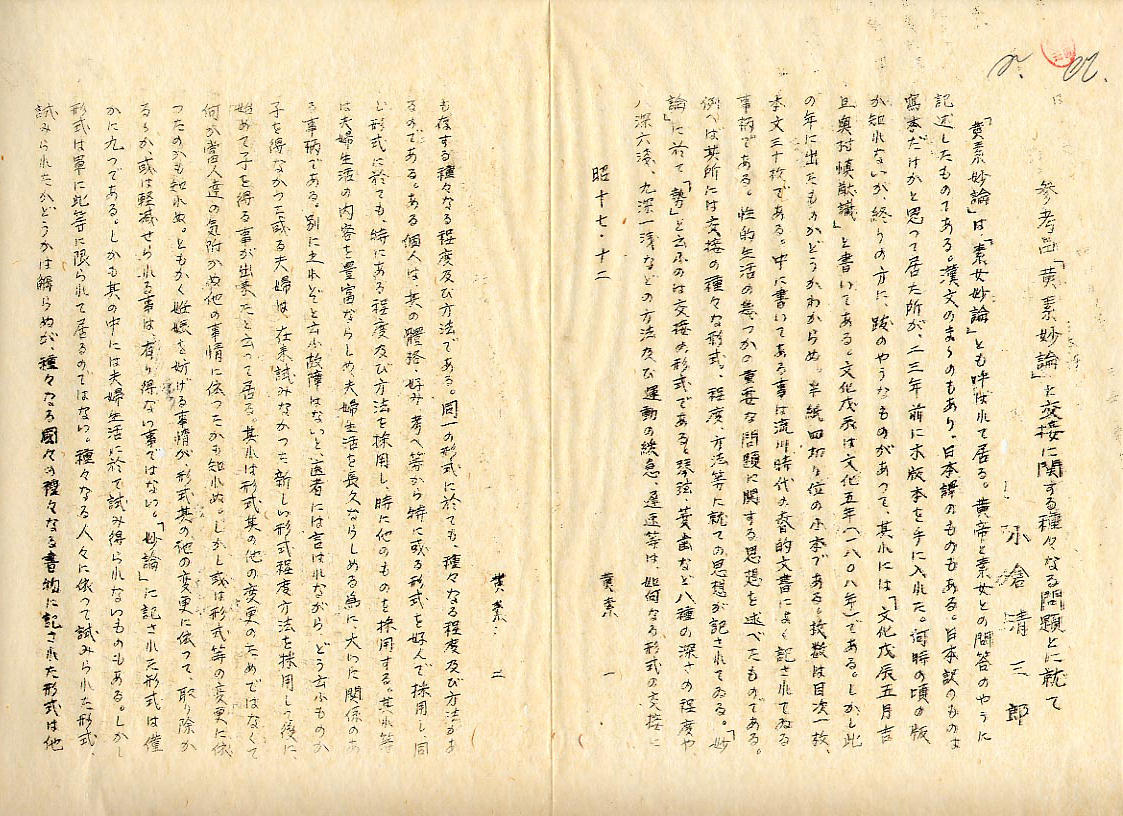 参考書「黄素妙論」と交接に関する種々なる問題とに就て
小倉清三郎
「黄素妙論」は、「素女妙論」とも呼ばれて居る。黄帝と素女との問答のやうに
記述したものである。漢文のまゝのもあり。日本譯のものもある。日本訳のものは
寫本だけかと思って居た所が、二三年前に木版本を手に入れた。何時の頃の版
か知れないが、終りの方に、跋のやうなものがあって、其れには「文化戊辰五月吉
旦奥村慎猷識」と書いてある。文化戊辰は文化五年(一八〇八年)である。しかし此
の年に出たものかどうかわからぬ。半紙四切り位の小本である。枚数は目次一枚、
本文三十枚である。中に書いてある事は流川時代の春的文書によく記されてゐる
事柄である。性的生活の幾つかの重要な問題に関する思想を述べたものである。
例へば其所には交接の種々な形式、程度、方法等に就ての思想が記されてゐる。「妙
論」に於て「勢」と云ふのは交接の形式である。琴弦、菱歯など八種の深さの程度や
八深六浅、九深一浅などの方法及び運動の緩急、遅速等は、如何なる形式の交接に
昭十七・十二
黄素 一
も存する種々なる程度及び方法である。同一の形式に於ても、種々なる程度及び方法があ
るのである。ある個人は其の體格、好み、考へ等から特に或る形式を好んで採用し、同
じ形式に於ても特にある程度及び方法を採用し、時に他のものを採用する。其れ等
は夫婦生活の内容を豊富ならしめ、夫婦生活を長久ならしめる為に、大いに関係のあ
る事柄である。別に之れぞと云ふ故障はないと、醫者には言はれながら、どう云ふものか
子を得なかった或る夫婦は、在来試みなかった新しい形式程度方法を採用して後に、
始めて子を得る事が出来たと云って居る。其れは形式其の他の変更のためではなくて
何か當人達の気附かぬ他の事情に依ったかも知れぬ。しかし或は形式等の変更に依
ったのかも知れぬ。ともかく妊娠を妨げる事情が、形式其の他の変更に依って、取り除か
るゝか、或は軽減せられる事は、有り得ない事ではない。「妙論」に記された形式は僅
かに九つである。しかも其の中には夫婦生活に於て試み得られないものもある。しかし
形式は單に此等に限られて居るのではない。種々なる人々に依って試みられた形式、
試みられたかどうかは解らぬが、種々なる國々の種々なる書物に記された形式は他
黄素 二